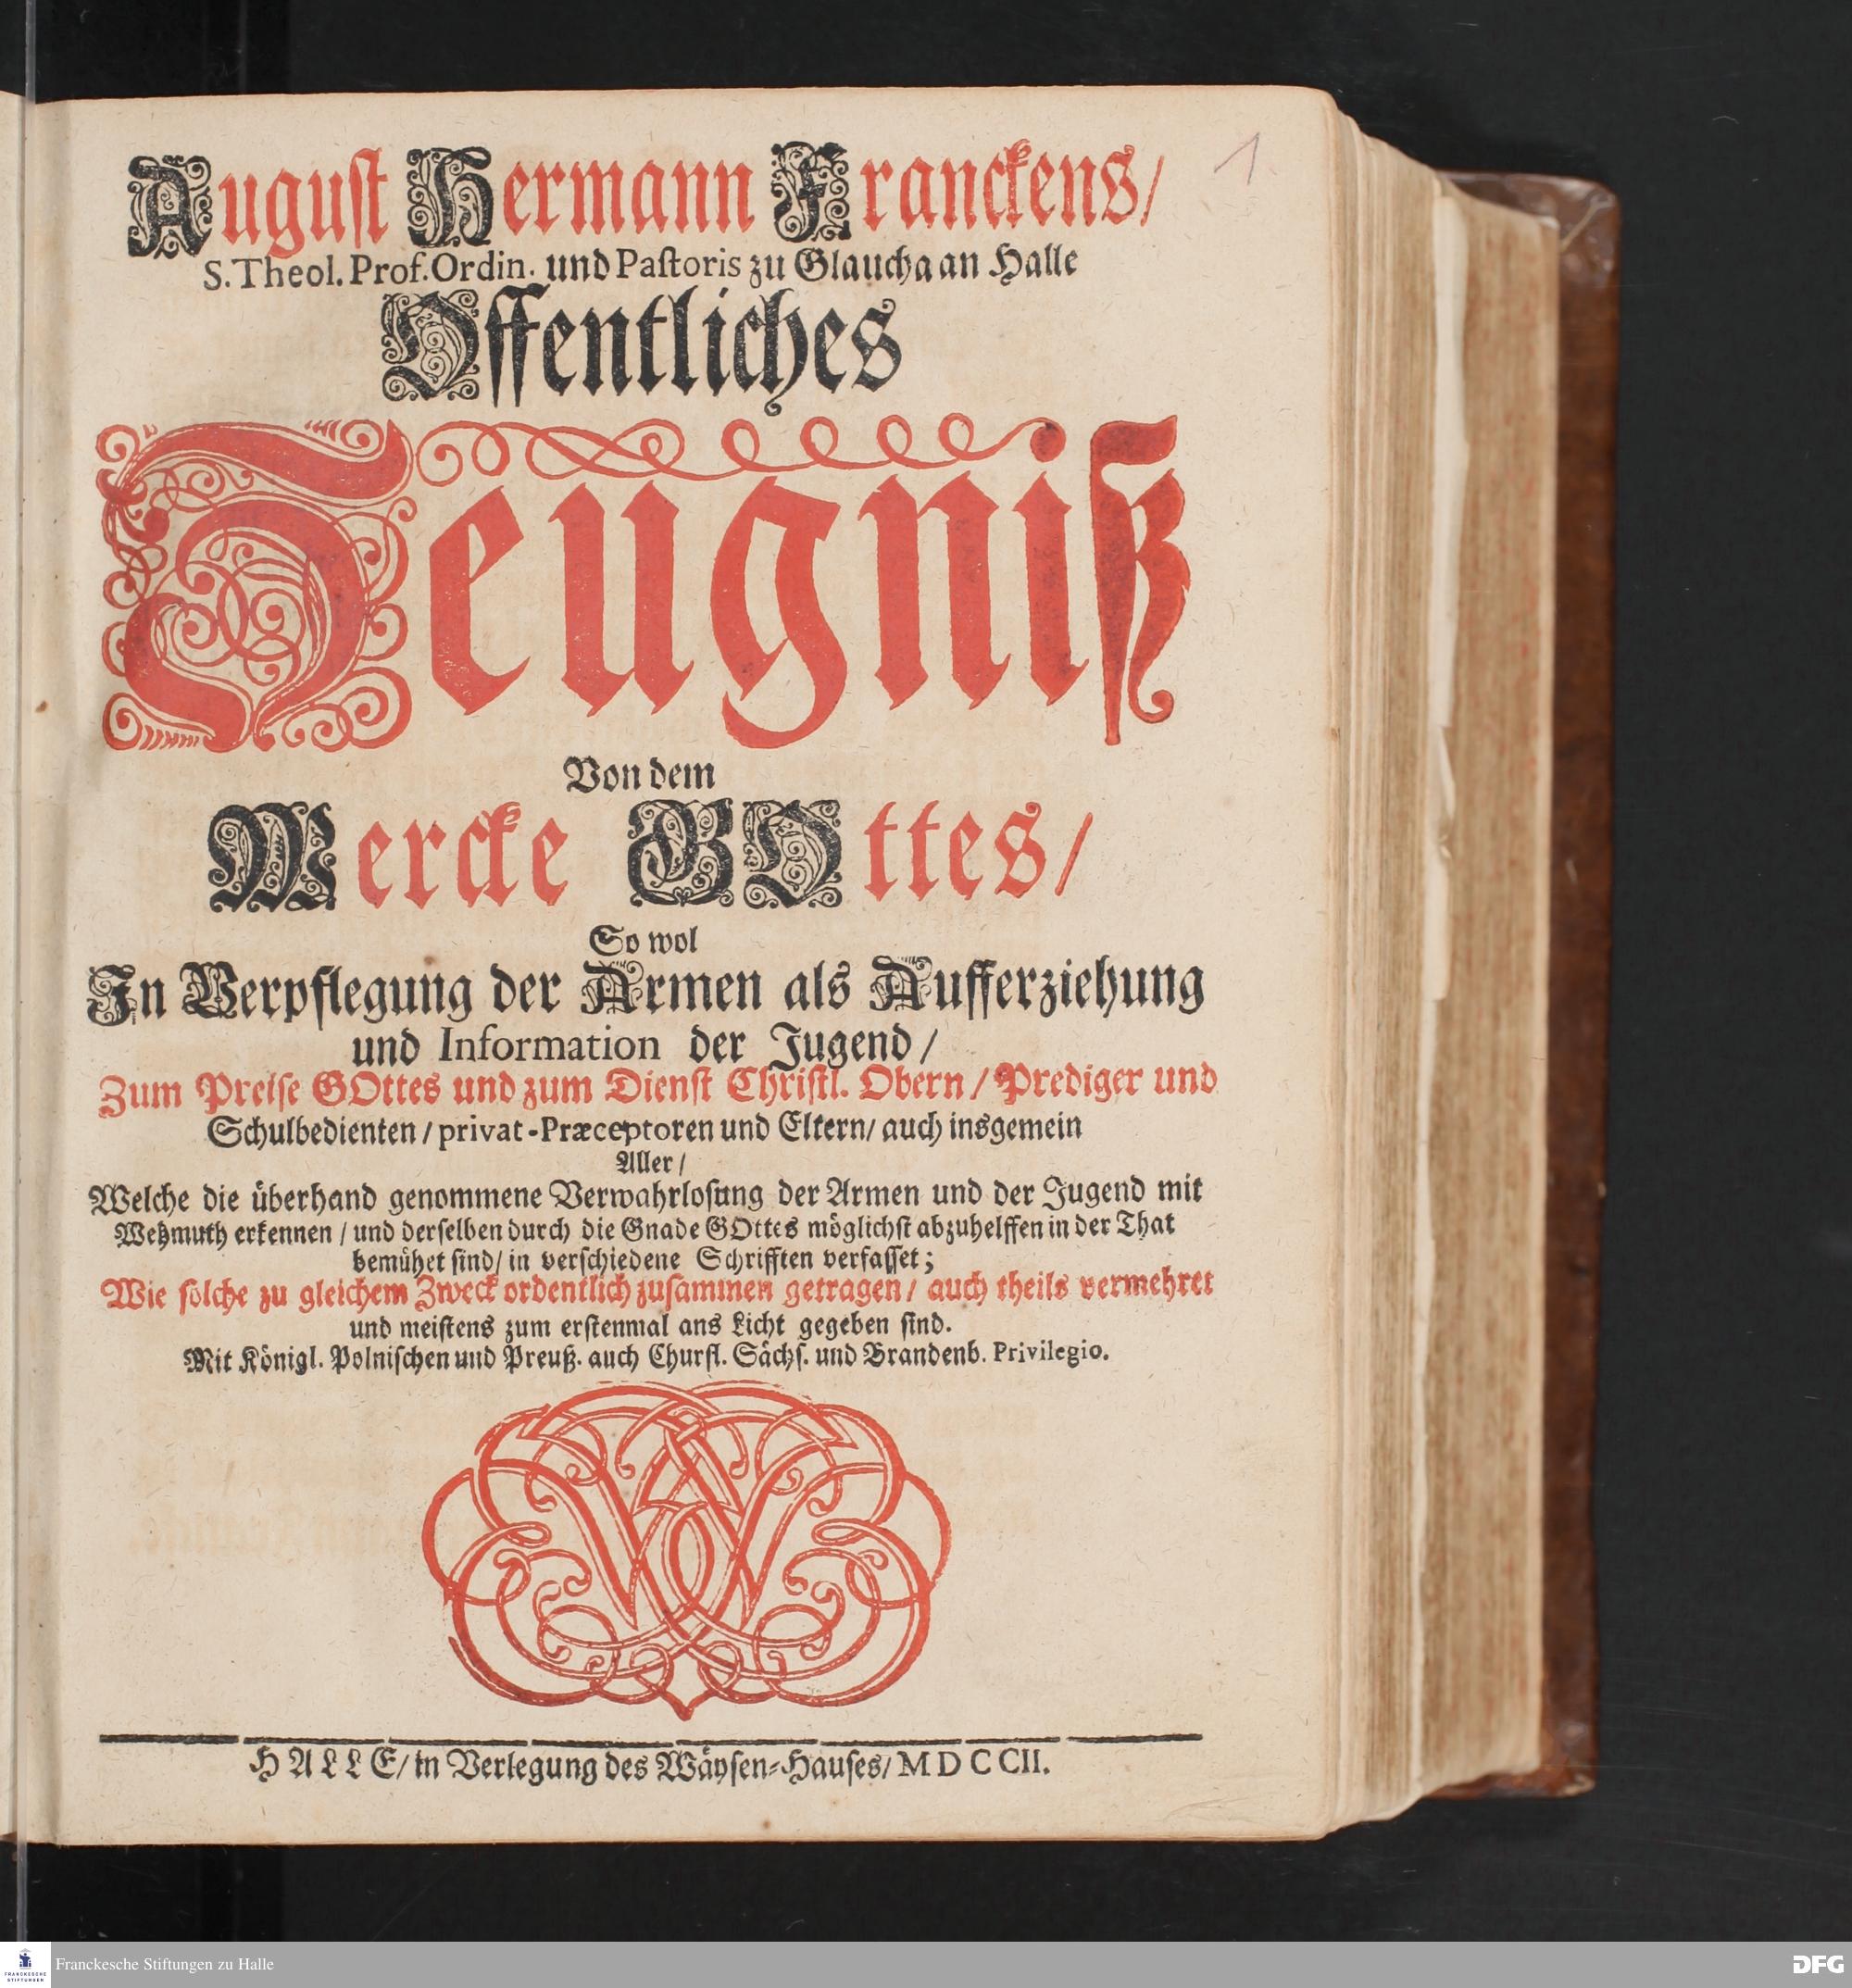 August Hermann Franckens/
1.
S. Theol. Prof. Ordin. und Pastoris zu Glaucha an Halle
Offentliches
Zeugniß
Von dem
Wercke GOttes/
So wol
In Verpflegung der Armen als Aufferziehung
und Information der Jugend/
Zum Preise GOttes und zum Dienst Christl. Obern/ Prediger und
Schulbedienten/ privat-Præceptoren und Eltern/ auch insgemein
Aller/
Welche die überhand genommene Verwahrlosung der Armen und der Jugend mit
Wehmuth erkennen/ und derselben durch die Gnade GOttes möglichst abzuhelffen in der That
bemühet sind/ in verschiedene Schrifften verfasset;
Wie solche zu gleichem Zweck ordentlich zusammen getragen/ auch theils vermehret
und meistens zum erstenmal ans Licht gegeben sind.
Mit Königl. Polnischen und Preuß. auch Churfl. Sächs. und Brandenb. Privilegio.
HALLE/ in Verlegung des Wäysen-Hauses/ MDCCII.
FRANCKESCHE
STIFTUNGEN
Franckesche Stiftungen zu Halle
DFG